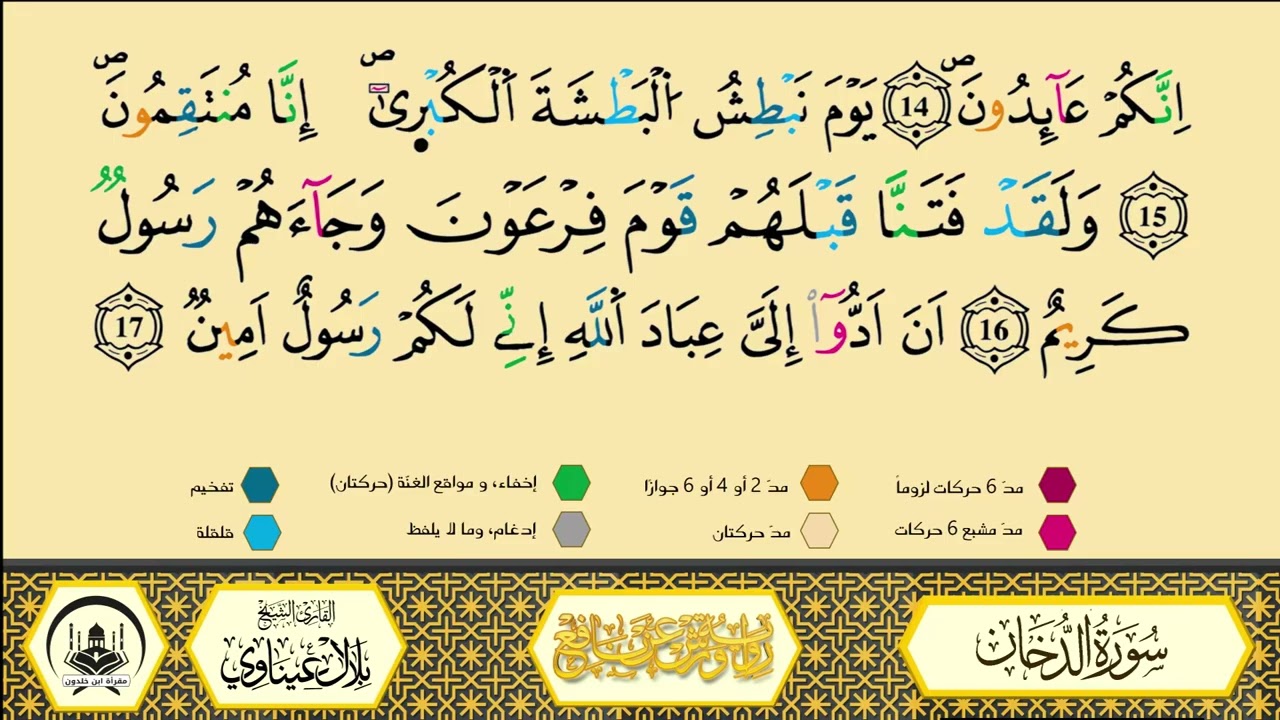 اِنَّكُمْ عَآئِدُونَۖ 14 يَوْمَ نَبْطِشُ اُ۬لْبَطْشَةَ اَ۬لْكُبْر۪ىٰٓۖ إِنَّا مُنتَقِمُونَۖ
15 وَلَقَدْ فَتَنَّا قَبْلَهُمْ قَوْمَ فِرْعَوْنَ وَجَآءَهُمْ رَسُولٞ
كَرِيمٌ 16 اَنَ اَدُّوٓاْ إِلَيَّ عِبَادَ اَ۬للَّهِ إِنِّے لَكُمْ رَسُولٌ اَمِينٞ 17
مدّ 6 حركات لزوماً
مدّ 2 أو 4 أو 6 جوازًا
إخفاء، و مواقع الغنّة (حركتان)
تفخيم
مدّ مشبع 6 حركات
مدّ حركتان
إدغام، وما لا يلفظ
قلقلة
سُورَةُ الدُّخَان
رواية ورش عن نافع
القارئ الشيخ
بلال عيناوي
مقرأة ابن خلدون